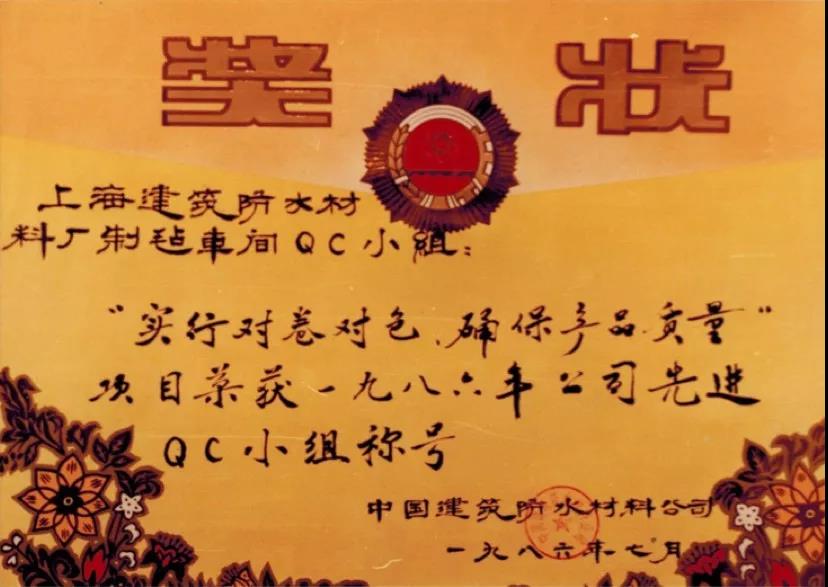 奖状
上海建筑防水材
料厂制毡车间QC小组:
“实行对卷对色、确保产品质量”
项目荣获一九八六年公司先进
QC小组称号
中国建筑防水材料公司
一九八六年七月